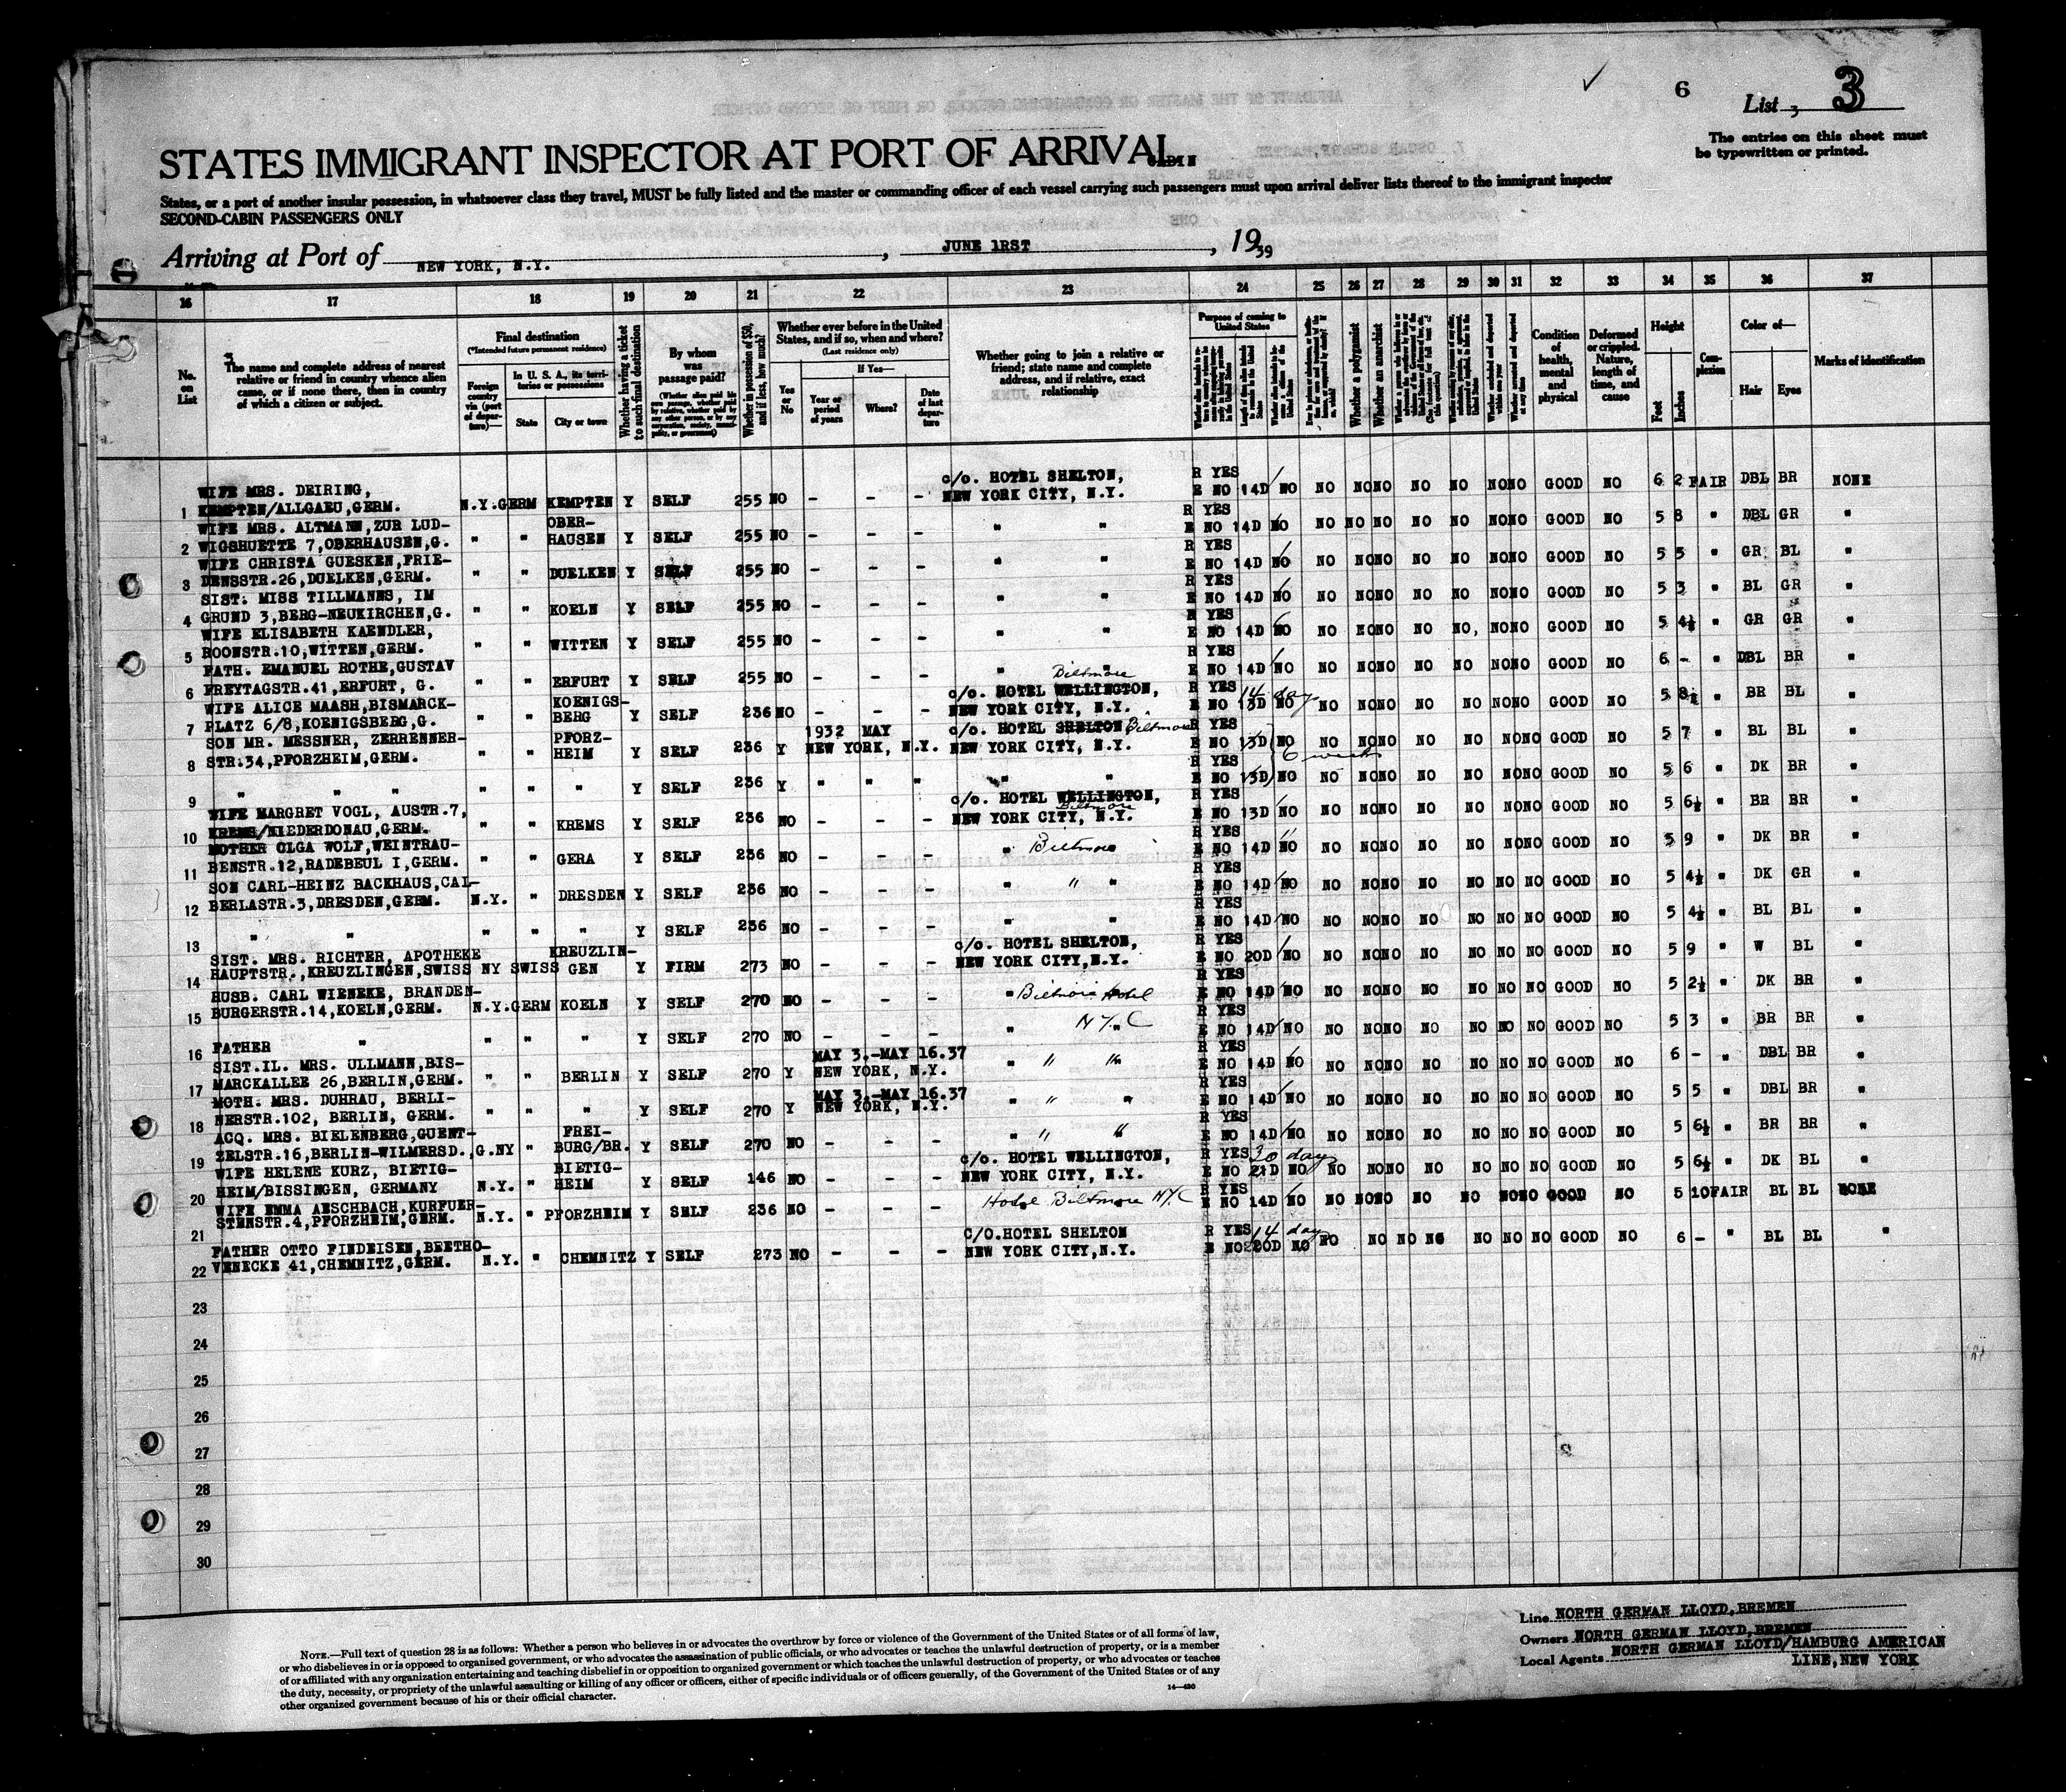 6
List 3 3
The entries on this sheet must
be typewritten or printed.
STATES IMMIGRANT INSPECTOR AT PORT OF ARRIVAL
States, or a port of another insular possession, in whatsoever class they travel, MUST be fully listed and the master or commanding officer of each vessel carrying such passengers must upon arrival deliver lists thereof to the immigrant inspector
SECOND-CABIN PASSENGERS ONLY
Arriving at Port of NEW YORK, N.Y. , JUNE 1RST , 1939
16 17 18 19 20 21 22 23 24 25 26 27 28 29 30 31 32 33 34 35 36 37
No. on List
The name and complete address of nearest relative or friend in country whence alien came, or if none there, then in country of which a citizen or subject.
Final destination
(*Intended future permanent residence)
Foreign country via (port of departure)—
In U. S. A., its territories or possessions
State
City or town
Whether having a ticket to such final destination
By whom was passage paid?
(Whether alien paid his own passage, whether paid by relative, whether paid by any other person, or by any corporation, society, municipality, or government)
Whether in possession of $50, and if less, how much?
Whether ever before in the United States, and if so, when and where?
(Last residence only)
Yes or No
If Yes—
Year or period of years
Where?
Date of last departure
Whether going to join a relative or friend; state name and complete address, and if relative, exact relationship
Purpose of coming to United States
Whether a polygamist
Whether an anarchist
Condition of health, mental and physical
Deformed or crippled. Nature, length of time, and cause
Height
Feet
Inches
Complexion
Color of—
Hair
Eyes
Marks of identification
1 WIFE MRS. DEIRING, KEMPTEN/ALLGAEU,GERM. N.Y. GERM KEMPTEN Y SELF 255 NO – – – c/o. HOTEL SHELTON, NEW YORK CITY, N.Y. R YES E NO 14D NO NO NO NO NO NO NO NO GOOD NO 6 2 FAIR DBL BR NONE
2 WIFE MRS. ALTMANN,ZUR LUD- WIGSHUETTE 7,OBERHAUSEN,G. " " OBER- HAUSEN Y SELF 255 NO – – – " " R YES E NO 14D NO NO NO NO NO NO NO NO GOOD NO 5 8 " DBL GR "
3 WIFE CHRISTA GUESKEN,FRIE- DENSSTR.26,DUELKEN,GERM. " " DUELKEN Y SELF 255 NO – – – " " R YES E NO 14D NO NO NO NO NO NO NO NO GOOD NO 5 5 " GR BL "
4 SIST. MISS TILLMANNS, IM GRUND 3,BERG-NEUKIRCHEN,G. " " KOELN Y SELF 255 NO – – – " " R YES E NO 14D NO NO NO NO NO NO NO NO GOOD NO 5 3 " BL GR "
5 WIFE ELISABETH KAENDLER, ROONSTR.10,WITTEN,GERM. " " WITTEN Y SELF 255 NO – – – " " R YES E NO 14D NO NO NO NO NO NO, NO NO GOOD NO 5 4½ " GR GR "
6 FATH. EMANUEL ROTHE,GUSTAV FREYTAGSTR.41,ERFURT, G. " " ERFURT Y SELF 255 NO – – – " " R YES E NO 14D NO NO NO NO NO NO NO NO GOOD NO 6 – " DBL BR "
7 WIFE ALICE MAASH,BISMARCK- PLATZ 6/8,KOENIGSBERG,G. " " KOENIGS- BERG Y SELF 236 NO – – – c/o. HOTEL WELLINGTON, Biltmore NEW YORK CITY, N.Y. R YES E NO 13D 14 days NO NO NO NO NO NO NO NO GOOD NO 5 8½ " BR BL "
8 SON MR. MESSNER, ZERRENNER- STR.34,PFORZHEIM,GERM. " " PFORZ- HEIM Y SELF 236 Y 1932 MAY NEW YORK, N.Y. c/o. HOTEL SHELTON Biltmore NEW YORK CITY, N.Y. R YES E NO 13D NO 6 weeks NO NO NO NO NO NO NO GOOD NO 5 7 " BL BL "
9 " " " " " " Y SELF 236 Y " " " " " R YES E NO 13D NO NO NO NO NO NO NO NO GOOD NO 5 6 " DK BR "
10 WIFE MARGRET VOGL, AUSTR.7, KREMS/NIEDERDONAU,GERM. " " KREMS Y SELF 236 NO – – – c/o. HOTEL WELLINGTON, Biltmore NEW YORK CITY, N.Y. R YES E NO 13D NO NO NO NO NO NO NO NO GOOD NO 5 6½ " BR BR "
11 MOTHER OLGA WOLF,WEINTRAU- BENSTR.12,RADEBEUL I,GERM. " " GERA Y SELF 236 NO – – – " Biltmore R YES E NO 14D NO NO NO NO NO NO NO NO GOOD NO 5 9 " DK BR "
12 SON CARL-HEINZ BACKHAUS,CAL- BERLASTR.3,DRESDEN,GERM. N.Y. " DRESDEN Y SELF 236 NO – – – " " " R YES E NO 14D NO NO NO NO NO NO NO NO GOOD NO 5 4½ " DK GR "
13 " " " " " Y SELF 236 NO – – – " " R YES E NO 14D NO NO NO NO NO NO NO NO GOOD NO 5 4½ " BL BL "
14 SIST. MRS. RICHTER, APOTHEKE HAUPTSTR.,KREUZLINGEN,SWISS NY SWISS KREUZLIN- GEN Y FIRM 273 NO – – – c/o. HOTEL SHELTON, NEW YORK CITY,N.Y. R YES E NO 20D NO NO NO NO NO NO NO NO GOOD NO 5 9 " W BL "
15 HUSB. CARL WIENEKE, BRANDEN- BURGERSTR.14,KOELN,GERM. N.Y. GERM KOELN Y SELF 270 NO – – – " Biltmore Hotel R YES E NO 14D NO NO NO NO NO NO NO NO GOOD NO 5 2½ " DK BR "
16 FATHER " " " " Y SELF 270 NO – – – " NYC R YES E NO 14D NO NO NO NO NO NO NO NO GOOD NO 5 3 " BR BR "
17 SIST.IL. MRS. ULLMANN,BIS- MARCKALLEE 26,BERLIN,GERM. " " BERLIN Y SELF 270 Y MAY 3.-MAY 16.37 NEW YORK, N.Y. " " " R YES E NO 14D NO NO NO NO NO NO NO NO GOOD NO 6 – " DBL BR "
18 MOTH. MRS. DUHRAU, BERLI- NERSTR.102, BERLIN, GERM. " " " Y SELF 270 Y MAY 3.-MAY 16.37 NEW YORK, N.Y. " " " R YES E NO 14D NO NO NO NO NO NO NO NO GOOD NO 5 5 " DBL BR "
19 ACQ. MRS. BIELENBERG,GUENT- ZELSTR.16,BERLIN-WILMERSD.,G. NY " FREI- BURG/BR. Y SELF 270 NO – – – " " " R YES E NO 14D NO NO NO NO NO NO NO NO GOOD NO 5 6½ " BR BR "
20 WIFE HELENE KURZ, BIETIG- HEIM/BISSINGEN, GERMANY N.Y. " BIETIG- HEIM Y SELF 146 NO – – – c/o. HOTEL WELLINGTON, NEW YORK CITY, N.Y. R YES E NO 21D 30 days NO NO NO NO NO NO NO NO GOOD NO 5 6½ " DK BL "
21 WIFE EMMA AESCHBACH,KURFUER- STENSTR.4,PFORZHEIM,GERM. N.Y. " PFORZHEIM Y SELF 236 NO – – – Hotel Biltmore NYC R YES E NO 14D NO NO NO NO NO NO NO NO GOOD NO 5 10 FAIR BL BL NONE
22 FATHER OTTO FINDEISEN,BEETHO- VENECKE 41,CHEMNITZ,GERM. N.Y. " CHEMNITZ Y SELF 273 NO – – – C/O.HOTEL SHELTON NEW YORK CITY,N.Y. R YES E NO 20D 14 days NO NO NO NO NO NO NO NO GOOD NO 6 – " BL BL "
23
24
25
26
27
28
29
30
NOTE.—Full text of question 28 is as follows: Whether a person who believes in or advocates the overthrow by force or violence of the Government of the United States or of all forms of law,
or who disbelieves in or is opposed to organized government, or who advocates the assassination of public officials, or who advocates or teaches the unlawful destruction of property, or is a member
of or affiliated with any organization entertaining and teaching disbelief in or opposition to organized government or which teaches the unlawful destruction of property, or who advocates or teaches
the duty, necessity, or propriety of the unlawful assaulting or killing of any officer or officers, either of specific individuals or of officers generally, of the Government of the United States or of any
other organized government because of his or their official character.
14—430
Line NORTH GERMAN LLOYD,BREMEN
Owners NORTH GERMAN LLOYD,BREMEN
Local Agents NORTH GERMAN LLOYD/HAMBURG AMERICAN
LINE,NEW YORK